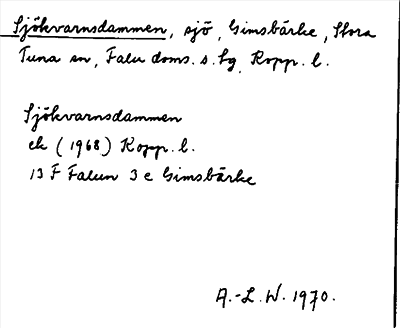 Sjökvarnsdammen, sjö, Gimsbärke, Stora
Tuna sn, Falu doms. s. lg, Kopp. l.
Sjökvarnsdammen
ek (1968) Kopp. l.
13 F Falun 3 e Gimsbärke
A.-L. W. 1970.